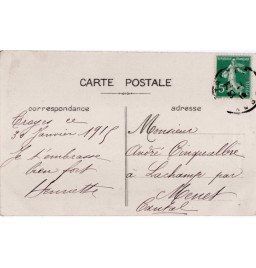 CARTE POSTALE
correspondance
adresse
Troyes ce
30 Janvier 1915
Je t'embrasse
bien fort
Henriette
Monsieur
André Cinqualbre
à Lachamp par
Menet
Cantal
5